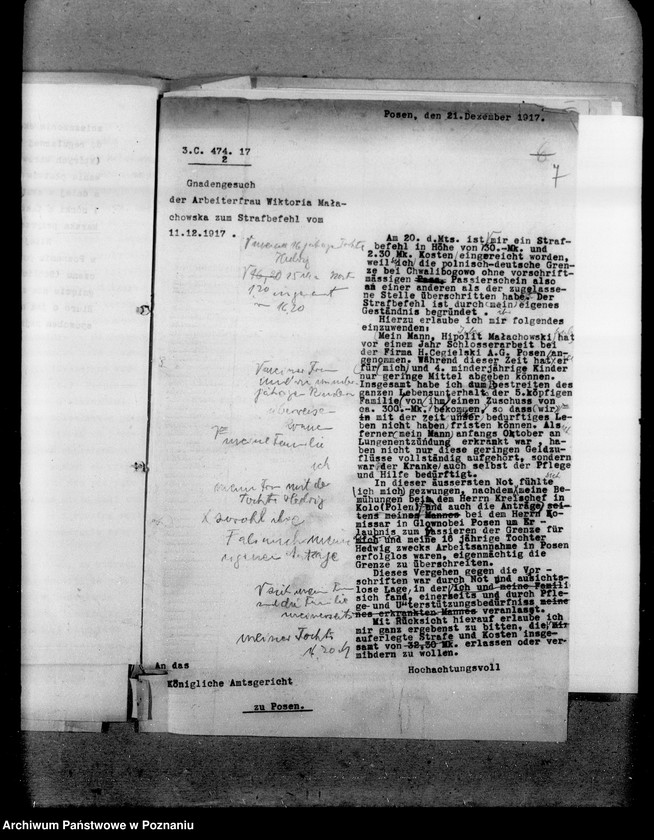 Posen, den 21.Dezember 1917.
3.C. 474. 17
2
7
Gnadengesuch
der Arbeiterfrau Wiktoria Mała-
chowska zum Strafbefehl vom
11.12.1917 .
Am 20. d.Mts. ist mir ein Straf-
befehl in Höhe von 30.-Mk. und
2.30 Mk. Kosten eingereicht worden,
weil ich die polnisch-deutsche Gren-
ze bei Chwalibogowo ohne vorschrift-
mässigen Passierschein also
an einer anderen als der zugelasse-
ne Stelle überschritten habe. Der
Strafbefehl ist durch mein eigenes
Geständnis begründet .
Hierzu erlaube ich mir folgendes
einzuwenden:
Mein Mann, Hipolit Małachowski hat
vor einem Jahr Schlosserarbeit bei
der Firma H.Cegielski A.G. Posen an-
genommen. Während dieser Zeit hat er
für mich und 4. minderjährige Kinder
nur geringe Mittel abgeben können.
Insgesamt habe ich zum Bestreiten des
ganzen Lebensunterhalt der 5.köpfigen
Familie von ihm einen Zuschuss von
ca. 300.-Mk. bekommen, so dass wir
in mit der zeit unser bedurftiges Le-
ben nicht haben fristen können. Als
ferner mein Mann anfangs Oktober an
Lungenentzündung erkrankt war , ha-
ben nicht nur diese geringen Geldzu-
flüsse vollständig aufgehört, sondern
war der Kranke auch selbst der Pflege
und Hilfe bedürftig.
In dieser äussersten Not fühlte
ich mich gezwungen, nachdem meine Be-
mühungen bei dem Herrn Kreischef in
Kolo(Polen) und auch die Anträge sei-
tens meines Mannes bei dem Herrn Ko-
missar in Glownobei Posen um Er -
laubnis zum Passieren der Grenze für
mich und meine 16 jährige Tochter
Hedwig zwecks Arbeitsannahme in Posen
erfolglos waren, eigenmächtig die
Grenze zu überschreiten.
Dieses Vergehen gegen die Vor -
schriften war durch Not und aussichts-
lose Lage, in der ich und meine Famili
sich fand, einerseits und durch Pfle-
ge-und Unterstützungsbedürfniss meine
nes erkrankten Mannes veranlasst.
Mit Rücksicht hierauf erlaube ich
mir ganz ergebenst zu bitten, die mir
auferlegte Strafe und Kosten insge-
samt von 32,30 Mk. erlassen oder ver-
mibdern zu wollen.
Hochachtungsvoll
meine Familie
ich
Tochter Hedwig
X sowohl
meiner Tochter
An das
Königliche Amtsgericht
zu Posen.
Archiwum Państwowe w Poznaniu